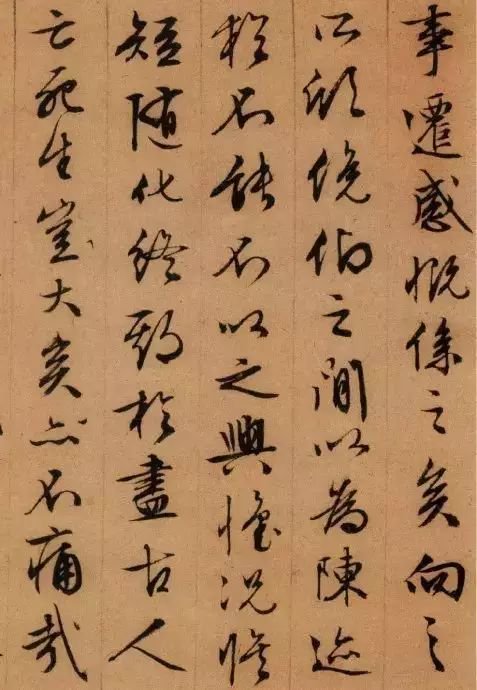 事遷感慨係之矣向之
所欣俛仰之間以為陳迹
猶不能不以之興懷況脩
短随化終期於盡古人
云死生豈大矣亦不痛哉